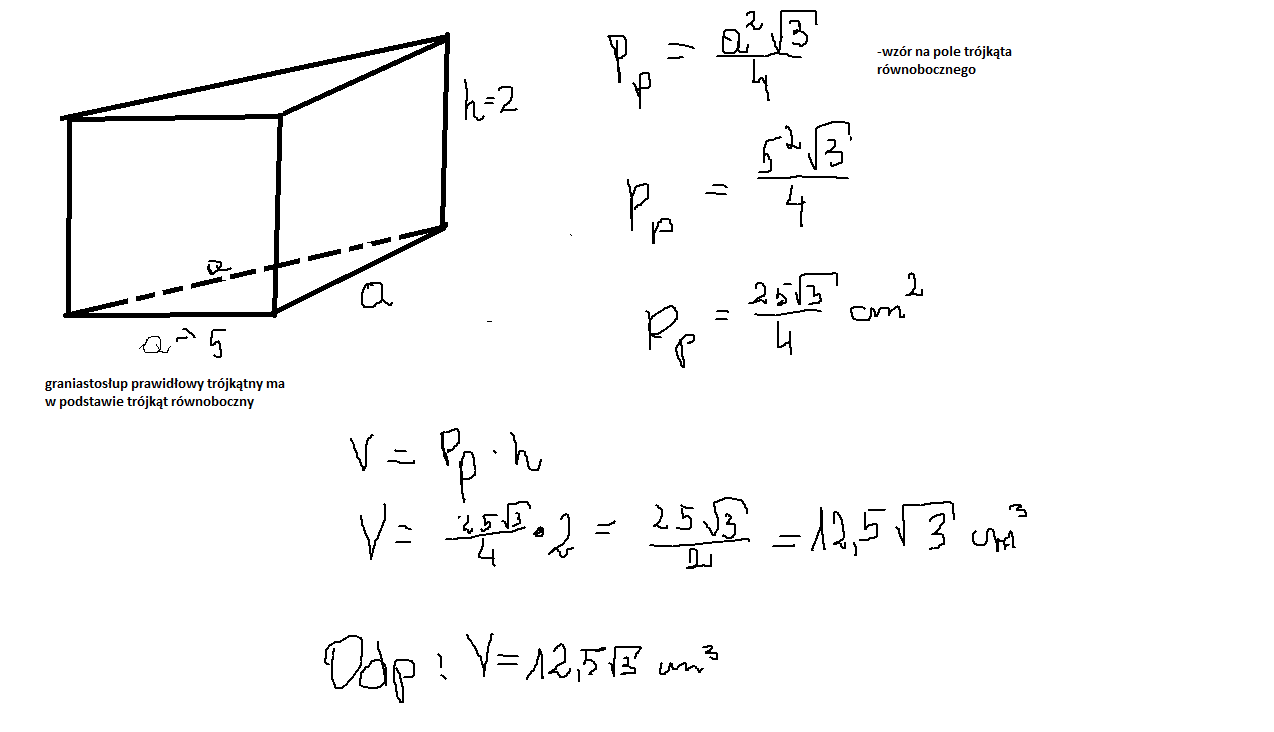 h=2
a
a
a=5
graniastosłup prawidłowy trójkątny ma
w podstawie trójkąt równoboczny
Pp = a²√3/4
-wzór na pole trójkąta
równobocznego
Pp = 5²√3/4
Pp = 25√3/4 cm²
V = Pp · h
V = 25√3/4 · 2 = 25√3/2 = 12,5√3 cm³
Odp: V=12,5√3 cm³